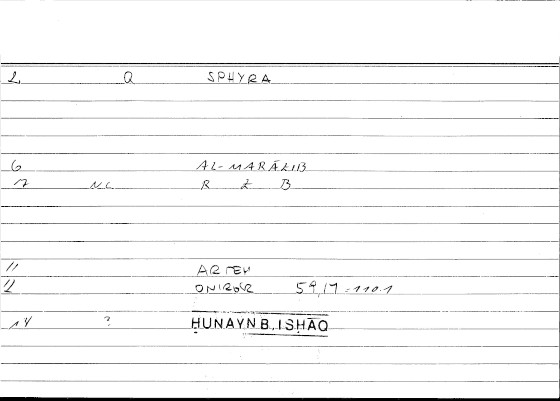 2 Q SPHYRA
6 AL-MARĀZIB
7 N.C. R Z B
11 ARTEM
12 ONIROCR 59,17 = 110.1
14 ? ḤUNAYN B. ISḤĀQ